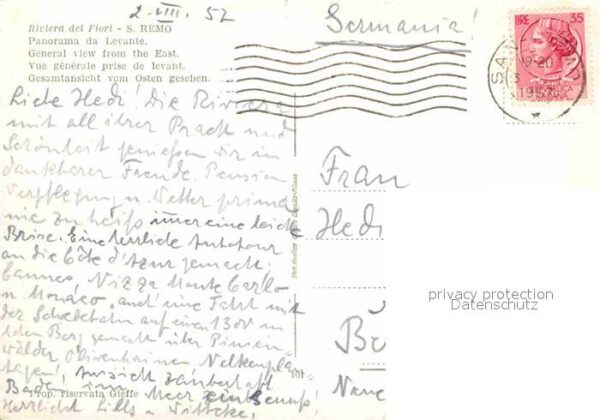 2.VIII.57
Germania!
Riviera dei Fiori - S. REMO
Panorama da Levante.
General view from the East.
Vue générale prise de levant.
Gesamtansicht vom Osten gesehen.
LIRE 35
SAN
9-20
1957
REPUBBLICA
ITALIANA
Liebe Hedi! Die Riviera
mit all ihrer Pracht und
Schönheit genießen wir in
dankbarer Freude. Pension
Verpflegung u. Wetter prima
nie zu heiß immer eine leichte
Brise. Eine herrliche Autotour
an die Côte d'Azur gemacht.
Cannes, Nizza Monte Carlo
u Monaco, auch eine Fahrt mit
der Schwebebahn auf einen 1300 m
hohen Berg gemacht über Pinien-
wälder Olivenhainen Nelkenplan-
tagen! Aussicht zauberhaft
Baden im Meer ein Genuß!
Herzlichst
Frau
Hedi
101
Prop. riservata Gieffe
privacy protection
Datenschutz